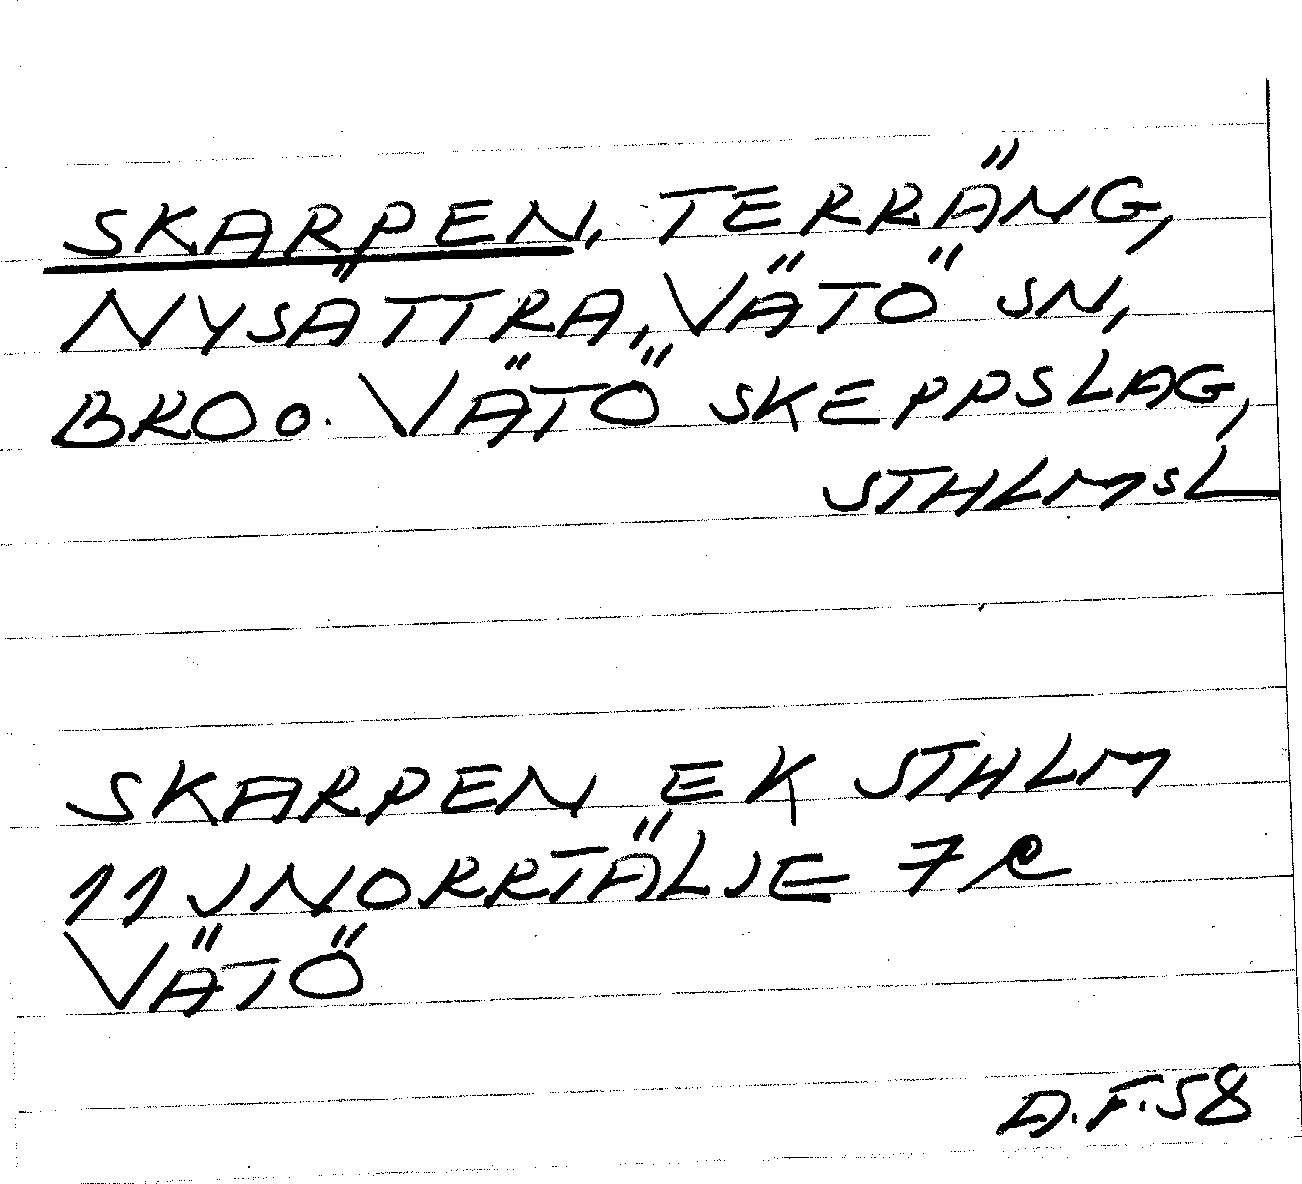 SKARPEN, TERRÄNG,
NYSÄTTRA, VÄTÖ SN,
BRO o. VÄTÖ SKEPPSLAG,
STHLMSL
SKARPEN EK STHLM
11J NORRTÄLJE 7e
VÄTÖ
A.F.58